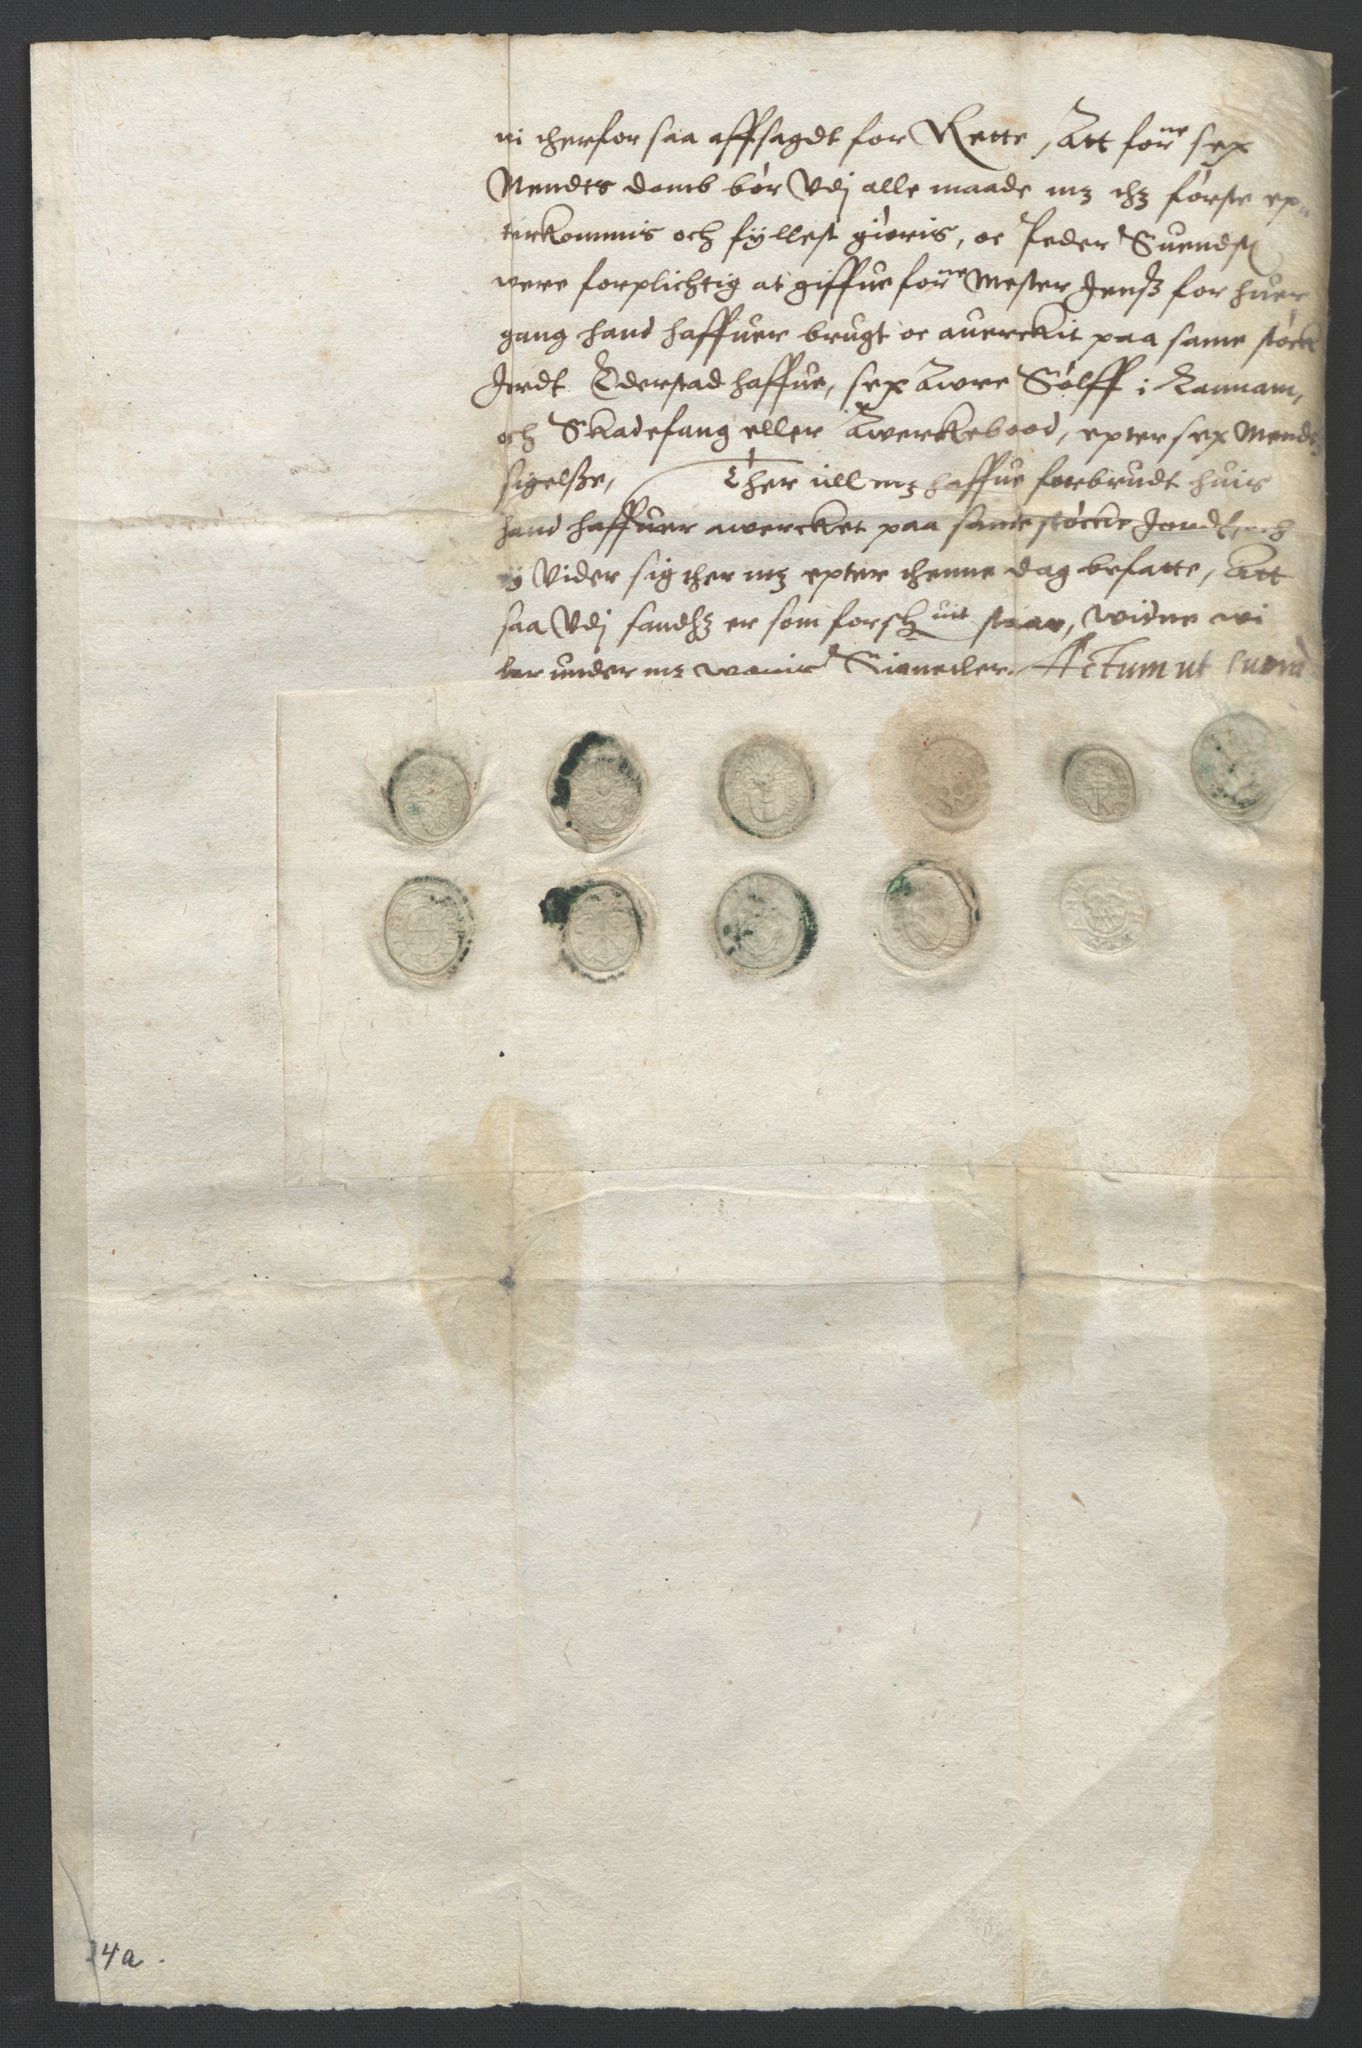 wi therfor saa affsagdt for Rette, Att for:ne sex
Mendts domb bør Vdj alle maade mz thz første ep-
terkommis och fyllest giøris, oc Peder Suends:
were forplichtig at giffue for:ne Mester Jenß for huer
gang hand haffuer brugt oc auerckit paa same støcke
Jordt Ederstad haffue, sex Awre Sølff i Rannam,
och Skadefang eller Awerkebood, epter sex Mendtz
sigelße, Ther till mz haffue forbrudt huis
hand haffuer awercket paa same støcke Jordt, och
ey Vider sig ther mz epter thenne dag befatte, Att
saa Vdj sandhz er som forsch:uit staar, widne wi
her under mz worris Signeter. Actum ut supra
14a.